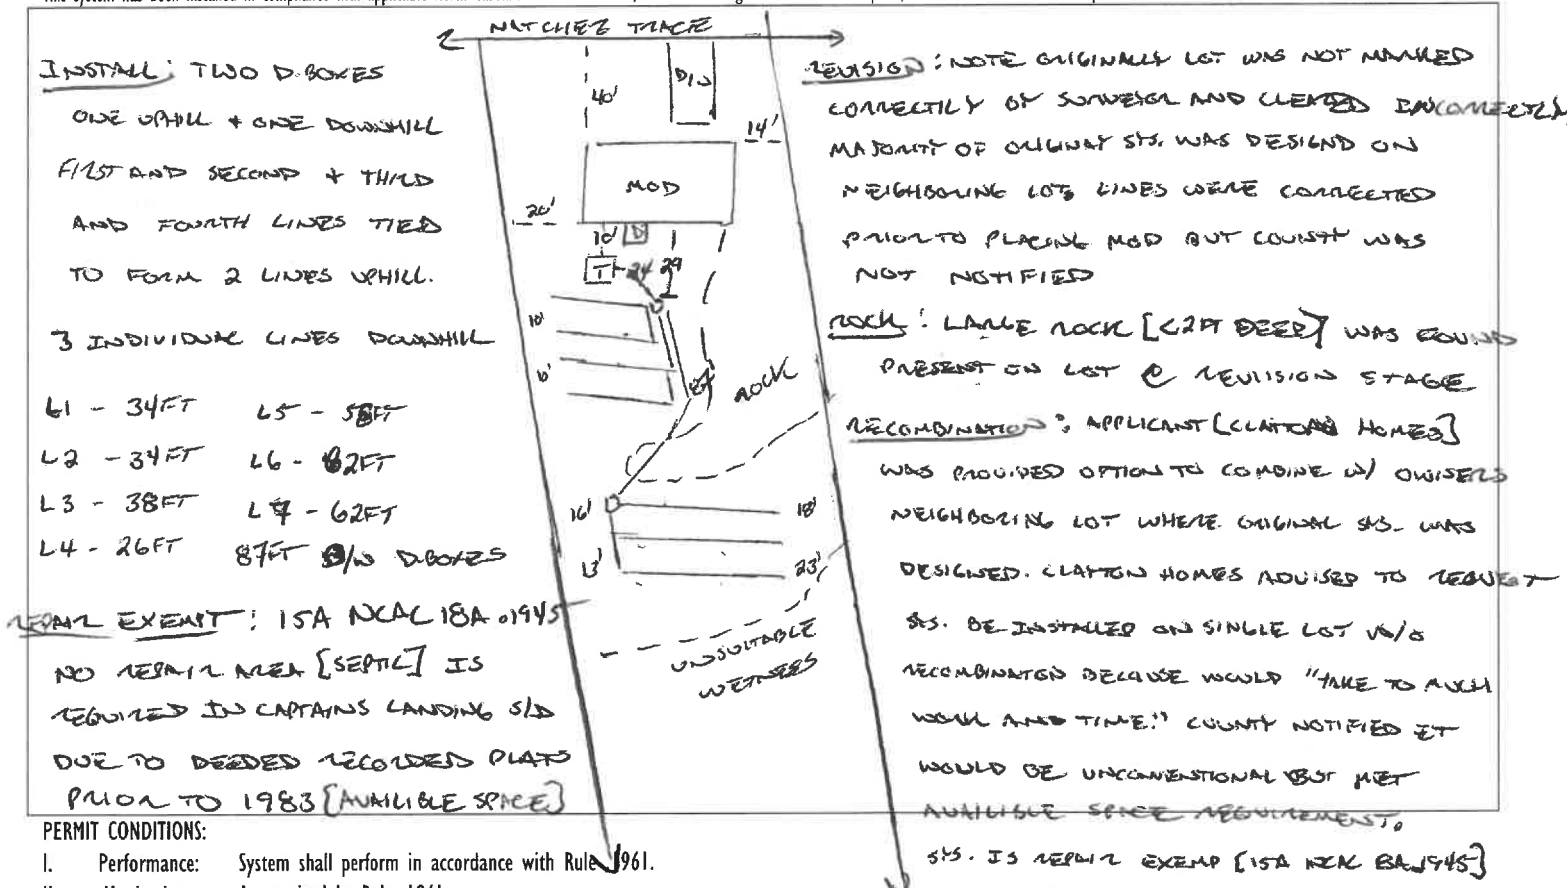 INSTALL: TWO D-BOXES
ONE UPHILL + ONE DOWNHILL
FIRST AND SECOND + THIRD
AND FOURTH LINES TIED
TO FORM 2 LINES UPHILL.
3 INDIVIDUAL LINES DOWNHILL
L1 - 34FT L5 - FT
L2 - 34FT L6 - 62FT
L3 - 38FT L7 - 62FT
L4 - 26FT 87FT B/W D-BOXES
REPAIR EXEMT: 15A NCAC 18A .1945
NO REPAIR AREA [SEPTIC] IS
REQUIRED IN CAPTAINS LANDING S/D
DUE TO DEEDED RECORDED PLATS
PRIOR TO 1983 [AVAILIBLE SPACE]
NATCHEZ TRACE
40'
D/W
14'
MOD
20'
10' D
T 24 29
10'
ROCK
16' 18'
13' 23'
UNSUITABLE
WETNESS
REVISION: NOTE ORIGINALLY LOT WAS NOT MARKED
CORRECTILY BY SURVEYOR AND CLEARED INCORRECTLY
MAJORITY OF ORIGINAL SYS. WAS DESIGND ON
NEIGHBORING LOT, LINES WERE CORRECTED
PRIOR TO PLACING MOD BUT COUNTY WAS
NOT NOTIFIED
ROCK: LARGE ROCK [<2FT DEEP] WAS FOUND
PRESENT ON LOT @ REVISION STAGE
RECOMBINATION: APPLICANT [CLAYTON HOMES]
WAS PROVIDED OPTION TO COMBINE W/ OWNERS
NEIGHBORING LOT WHERE ORIGINAL SYS. WAS
DESIGNED. CLAYTON HOMES ADVISED TO REQUEST
SYS. BE INSTALLED ON SINGLE LOT W/O
RECOMBINATON BECAUSE WOULD "TAKE TO MUCH
WORK AND TIME." COUNTY NOTIFIED IT
WOULD BE UNCONVENTIONAL BUT MET
AVAILIBLE SPACE REQUIREMENT.
SYS. IS REPAIR EXEMP [15A NCAC 18A.1945]
PERMIT CONDITIONS:
I. Performance: System shall perform in accordance with Rule .1961.